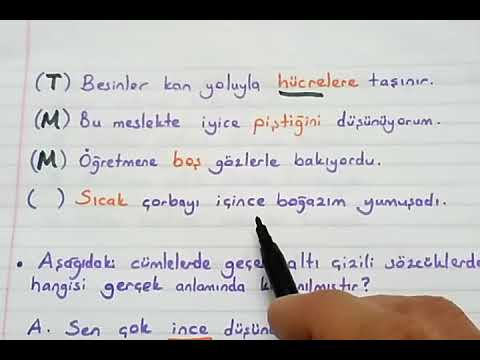 (T) Besinler kan yoluyla hücrelere taşınır.
(M) Bu meslekte iyice piştiğini düşünüyorum.
(M) Öğretmene boş gözlerle bakıyordu.
( ) Sıcak çorbayı içince boğazım yumuşadı.
• Aşağıdaki cümlelerde altı çizili sözcüklerde
hangisi gerçek anlamında
A. Sen çok ince